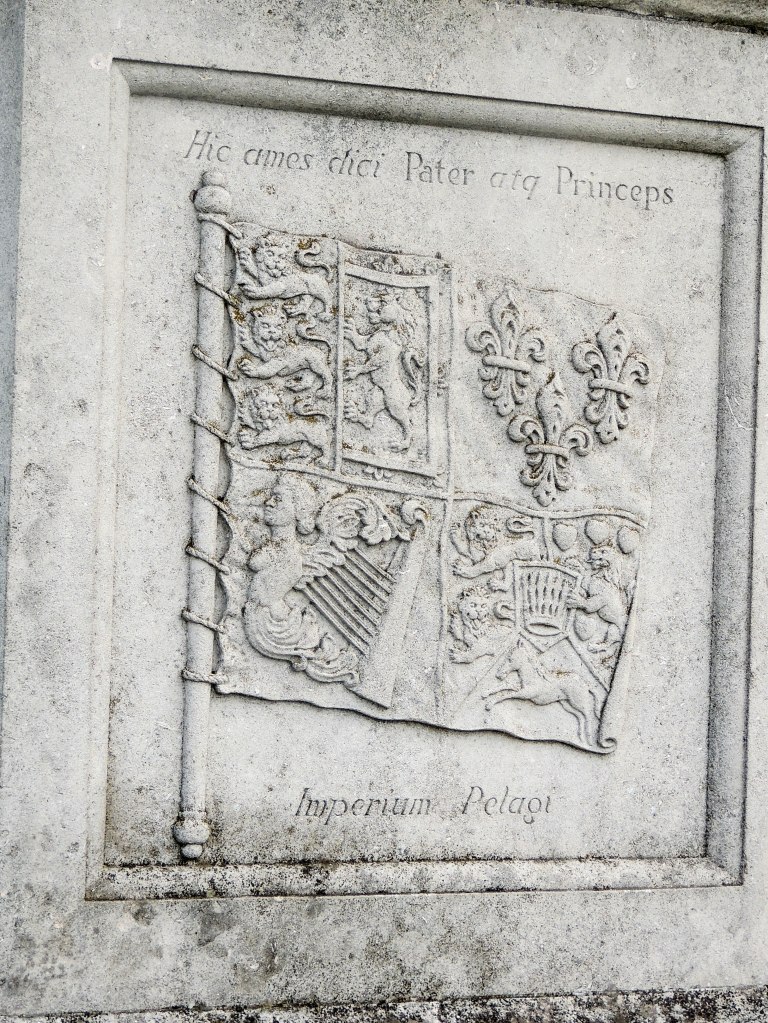 Hic ames dici Pater atq Princeps
Imperium Pelagi